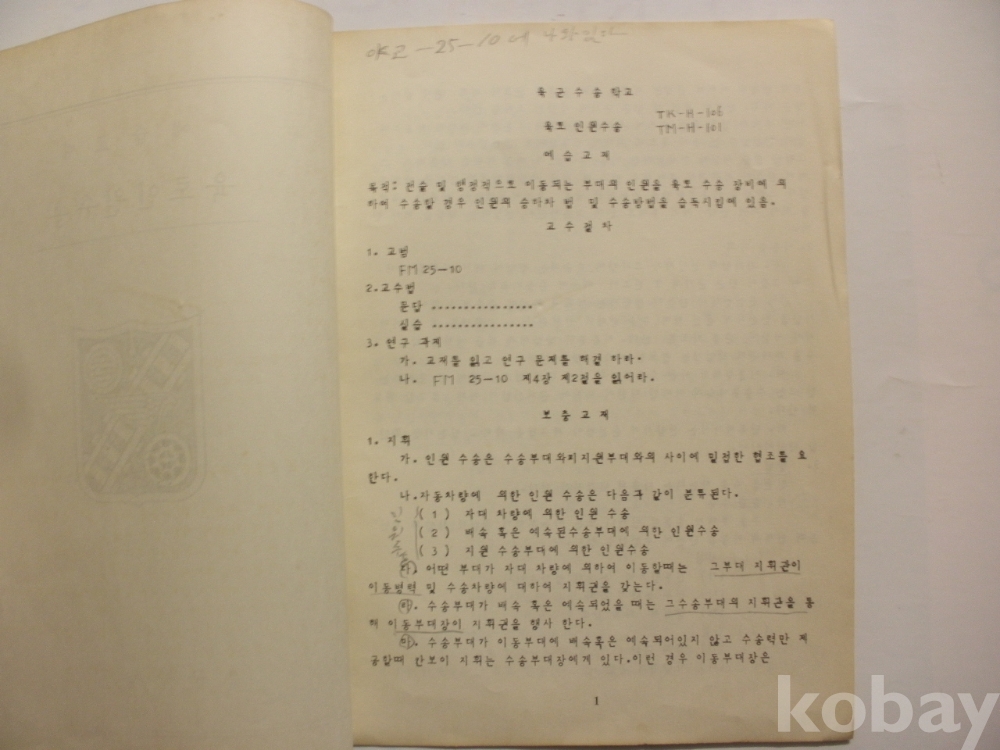 야교 -25-10에 나와있다
육군수송학교
육로 인원수송
TK-H-106
TM-H-101
예습교재
목적: 전술 및 행정적으로 이동되는 부대의 인원을 육로 수송 장비에 의
하여 수송할 경우 인원의 승하차 법 및 수송방법을 습득시킴에 있음.
교수절차
1. 교범
FM 25-10
2.교수법
문답 ................
실습 ................
3. 연구 과제
가. 교재를 읽고 연구 문제를 해결 하라.
나. FM 25-10 제4장 제2절을 읽어라.
보충교재
1. 지휘
가. 인원 수송은 수송부대와피지원부대와의 사이에 밀접한 협조를 요
한다.
나.자동차량에 의한 인원 수송은 다음과 같이 분류된다.
(1) 자대 차량에 의한 인원 수송
(2) 배속 혹은 예속된수송부대에 의한 인원수송
(3) 지원 수송부대에 의한 인원수송
다. 어떤 부대가 자대 차량에 의하여 이동할때는 그부대 지휘관이
이동병력 및 수송차량에 대하여 지휘권을 갖는다.
라. 수송부대가 배속 혹은 예속되었을 때는 그수송부대의 지휘관을 통
해 이동부대장이 지휘권을 행사 한다.
마. 수송부대가 이동부대에 배속혹은 예속되어있지 않고 수송력만 제
공할때 칸보이 지휘는 수송부대장에게 있다.이런 경우 이동부대장은
1
kobay